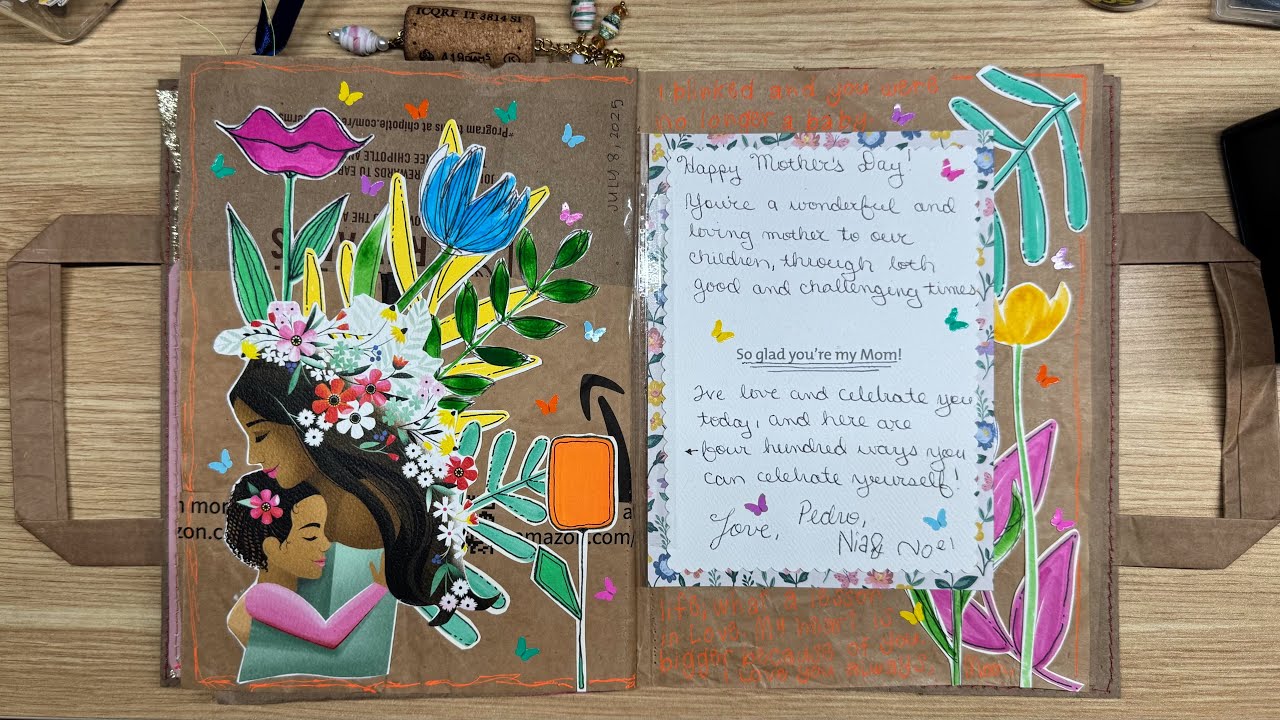 ICQRF IT 3814 SI
*Program tms at chipotle.com/re
REE CHIPOTLE AN
REWARDS TO EAR
JO
TO THE A
JULY 8, 2025
n mor
zon.c
a
amazon.com/
I blinked and you were
no longer a baby
Happy Mother's Day!
You're a wonderful and
loving mother to our
children, through both
good and challenging times
So glad you're my Mom!
We love and celebrate you
today, and here are
four hundred ways you
can celebrate yourself!
Love, Pedro,
Nia & Noel
life, what a
in Love. My heart is
bigger because of you
always.